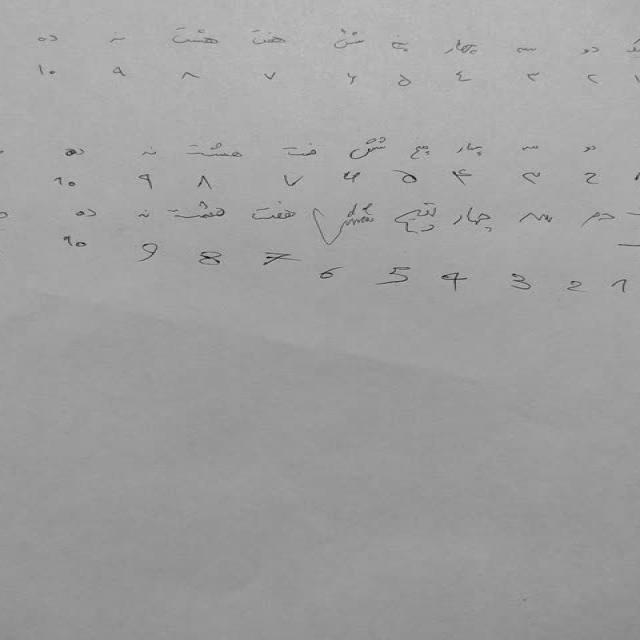 دو سه چهار پنج شش هفت هشت نه ده
۲ ۳ ۴ ۵ ۶ ۷ ۸ ۹ ۱۰
دو سه چهار پنج شش هفت هشت نه ده
۲ ۳ ۴ ۵ ۶ ۷ ۸ ۹ ۱۰
سه چهار هفت هشت نه ده
10 9 8 7 6 5 4 3 2 1